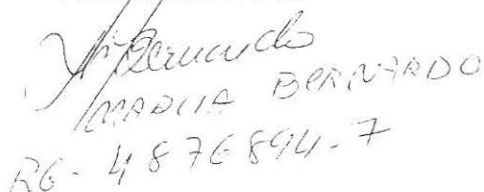 Bernardo
MARCIA BERNARDO
RG - 4876894-7